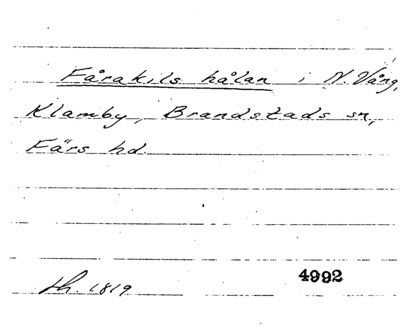 Fårakils hålan i N. Vång,
Klamby, Brandstads sn,
Färs hd.
sk. 1819
4992